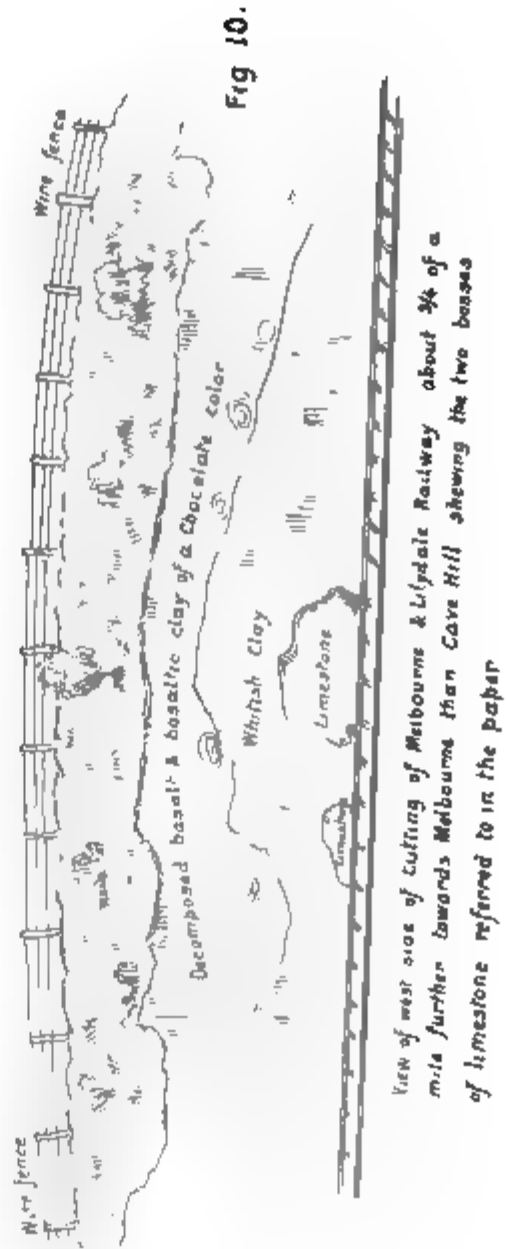 Wire fence
Wire fence
Fig 10.
Decomposed basalt & basaltic clay of a Chocolate color
Whitish Clay
Limestone
Limestone
View of west side of Cutting of Melbourne & Lilydale Railway about 3/4 of a
mile further towards Melbourne than Cave Hill shewing the two bosses
of limestone referred to in the paper